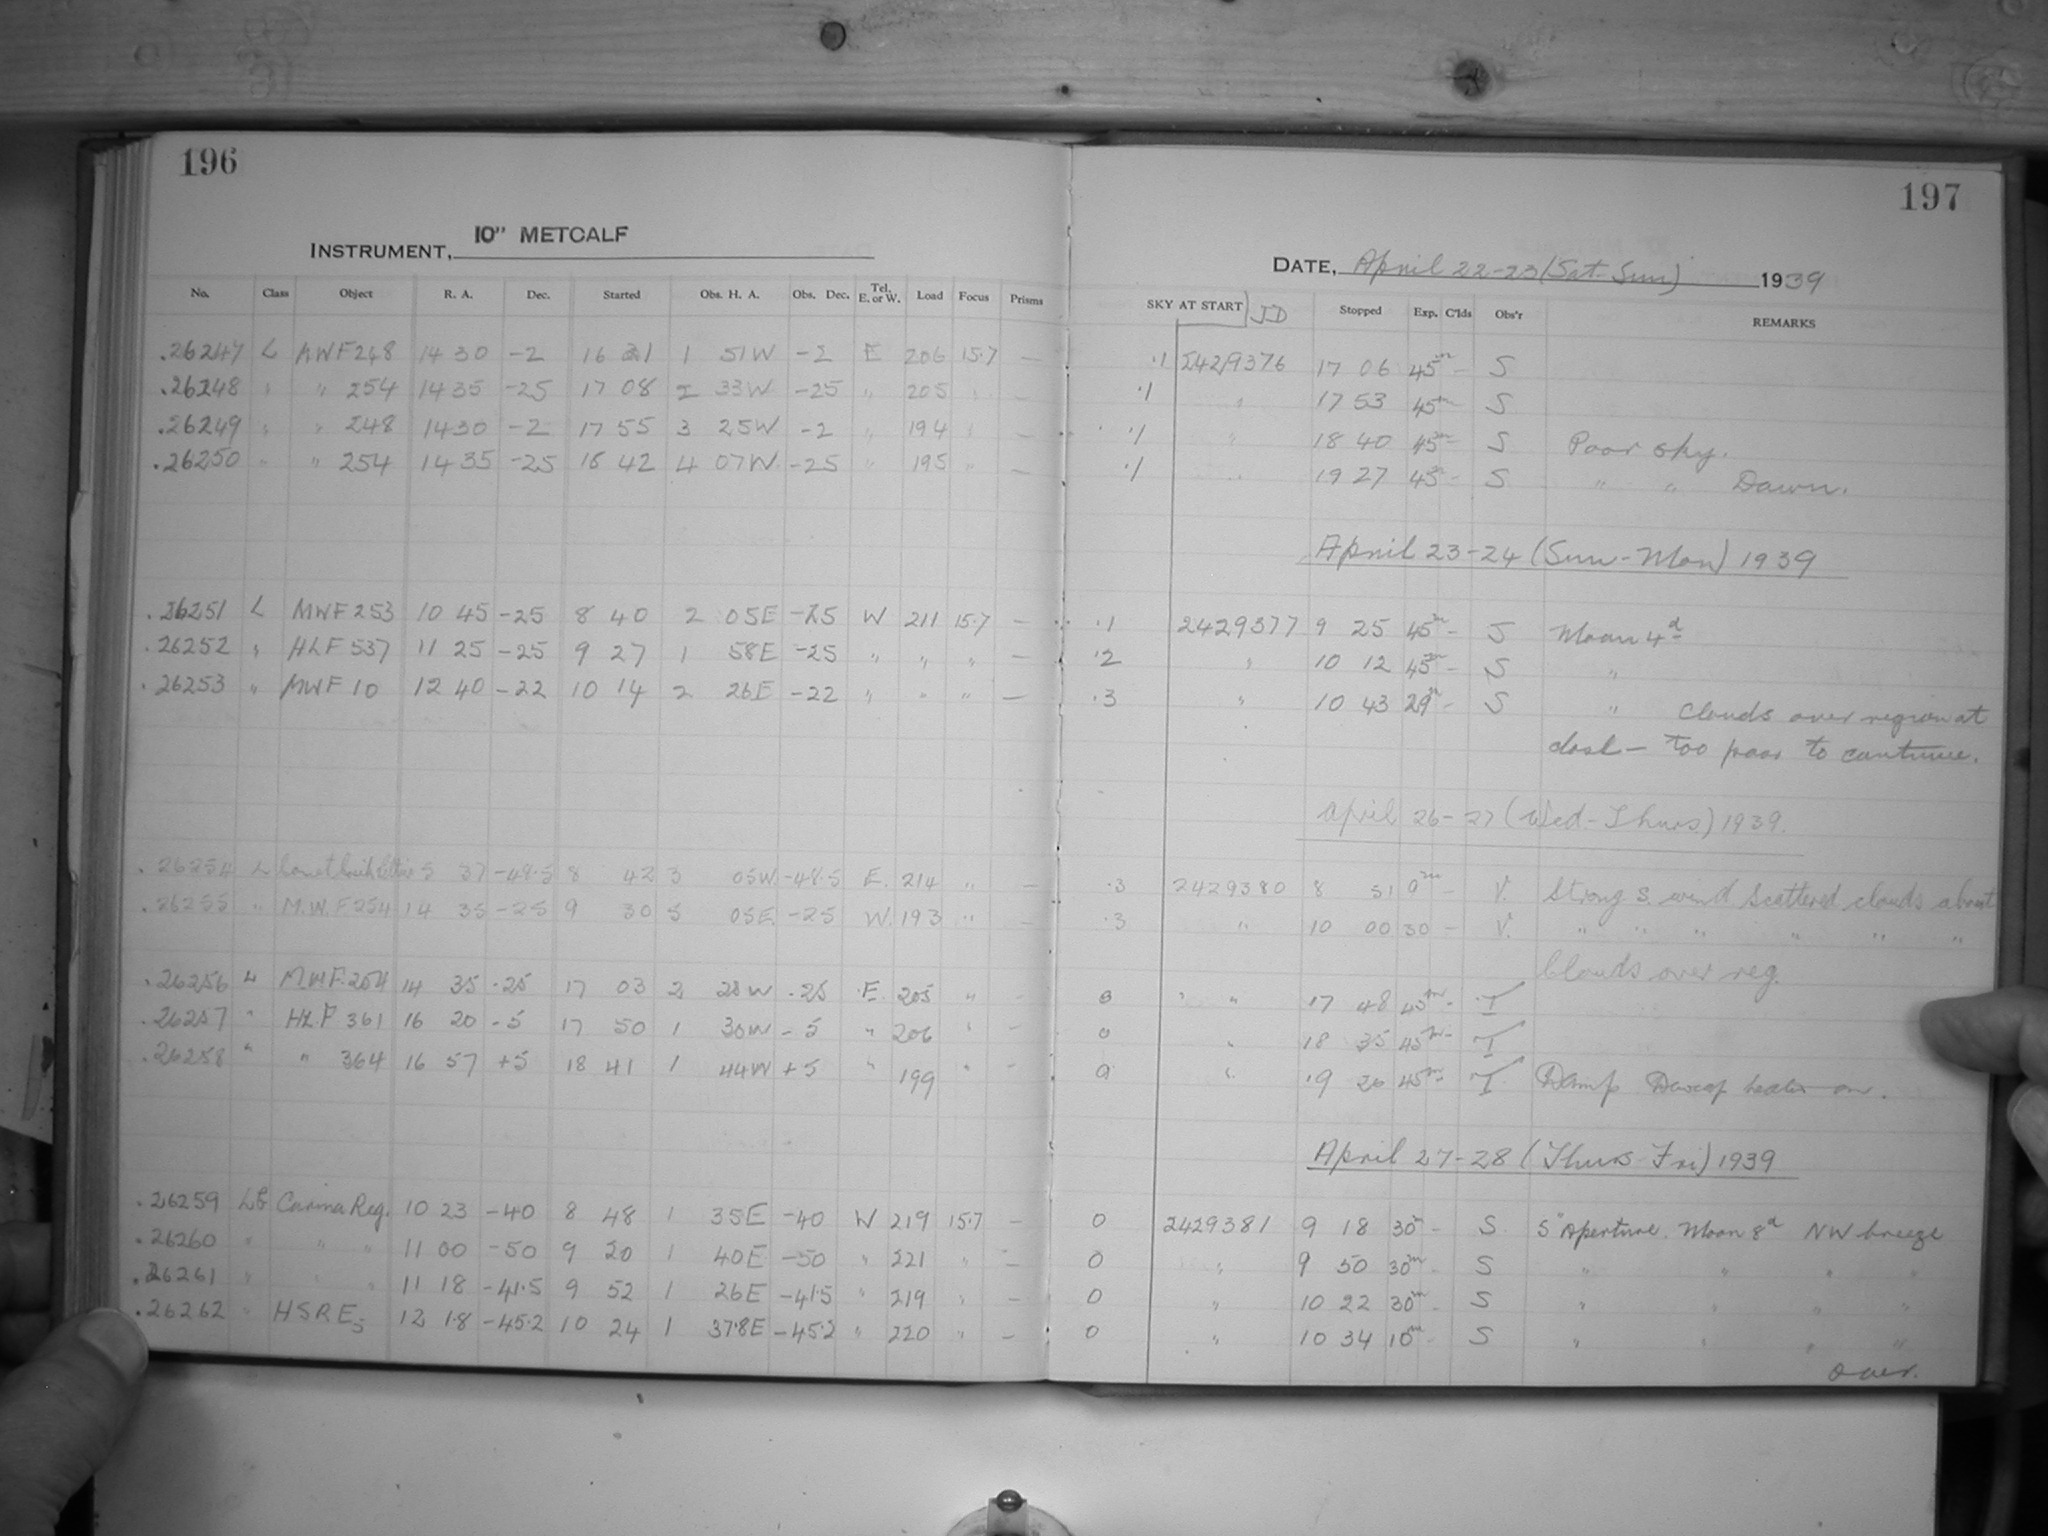 196
INSTRUMENT, 10" METCALF
No. Class Object R. A. Dec. Started Obs. H. A. Obs. Dec. Tel. E. or W. Load Focus Prisms
.26247 L MWF 248 14 30 -2 16 21 1 51W -2 E 206 15.7 —
.26248 " " 254 14 35 -25 17 08 2 33W -25 " 205 " —
.26249 " " 248 14 30 -2 17 55 3 25W -2 " 194 " —
.26250 " " 254 14 35 -25 18 42 4 07W -25 " 195 " —
.26251 L MWF 253 10 45 -25 8 40 2 05E -25 W 211 15.7 —
.26252 " HLF 537 11 25 -25 9 27 1 58E -25 " " " —
.26253 " MWF 10 12 40 -22 10 14 2 26E -22 " " " —
.26254 L 5 37 -48.5 8 42 3 05W -48.5 E. 214 " —
.26255 " M.W.F 254 14 35 -25 9 30 5 05E. -25 W. 193 " —
.26256 L M.W.F. 254 14 35 -25 17 03 2 28W -25 E. 205 " -
.26257 " HLF 361 16 20 -5 17 50 1 30W -5 " 206 " -
.26258 " " 364 16 57 +5 18 41 1 44W +5 " 199 " -
.26259 LB Carina Reg. 10 23 -40 8 48 1 35E -40 W 219 15.7 —
.26260 " " " 11 00 -50 9 20 1 40E -50 " 221 " —
.26261 " " " 11 18 -41.5 9 52 1 26E -41.5 " 219 " —
.26262 " HSRE5 12 1.8 -45.2 10 24 1 37.8E -45.2 " 220 " —
197
DATE, April 22-23 (Sat-Sun) 1939
SKY AT START JD Stopped Exp. C'lds Obs'r REMARKS
.1 2429376 17 06 45m - S
.1 " 17 53 45m - S
.1 " 18 40 45m - S Poor sky.
.1 " 19 27 45m - S " " Dawn.
April 23-24 (Sun-Mon) 1939
.1 2429377 9 25 45m - S Moon 4d
.2 " 10 12 45m - S "
.3 " 10 43 29m - S " Clouds over region at
close — too poor to continue.
April 26-27 (Wed-Thurs) 1939.
.3 2429380 8 51 9m - V. Strong S. wind Scattered clouds about
.3 " 10 00 30 - V. " " " " " "
Clouds over reg.
0 " " 17 48 45m - T
0 " 18 35 45m - T
0 " 19 26 45m - T Damp Dewcap heater on.
April 27-28 (Thurs-Fri) 1939
0 2429381 9 18 30m - S 5" Aperture. Moon 8d NW breeze
0 " 9 50 30m - S " " " "
0 " 10 22 30m - S " " " "
0 " 10 34 10m - S " " " "
over.